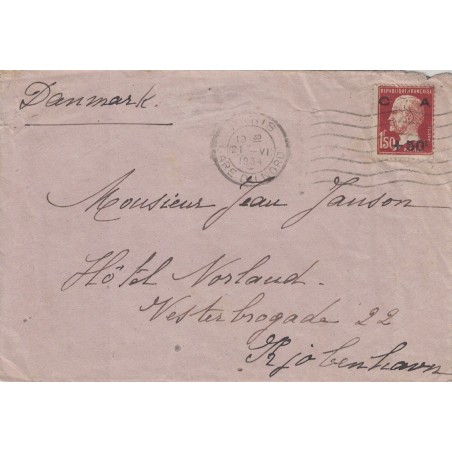 Danmark.
REPUBLIQUE FRANÇAISE
C A
1F50 +50c
PARIS
21 - VI
1934
GARE DU NORD
Monsieur Jean Janson
Hôtel Norland.
Vesterbrogade 22
Kjöbenhavn